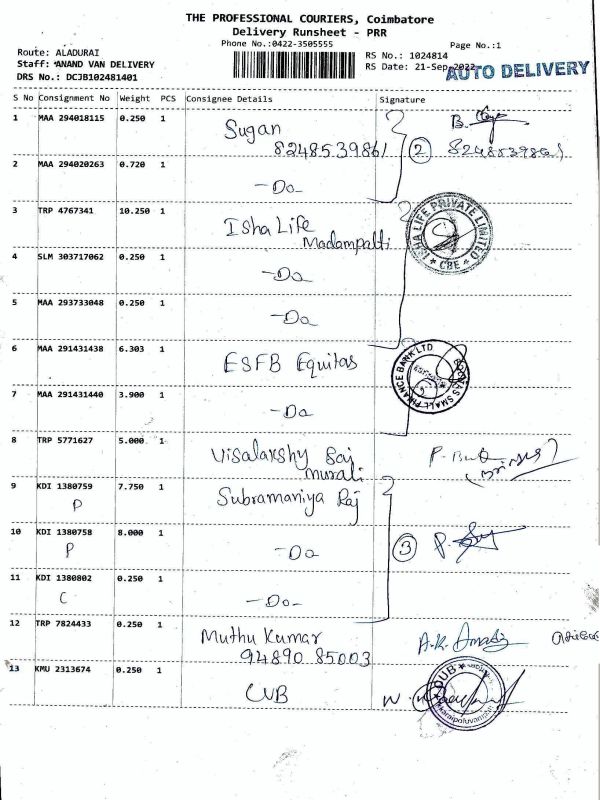 THE PROFESSIONAL COURIERS, Coimbatore
Delivery Runsheet - PRR
Phone No.:0422-3505555
Page No.:1
Route: ALADURAI
Staff: ANAND VAN DELIVERY
DRS No.: DCJB102481401
RS No.: 1024814
RS Date: 21-Sep-2022
AUTO DELIVERY
S No Consignment No Weight PCS Consignee Details Signature
1 MAA 294018115 0.250 1 Sugan B.
8248539861 2 8248539861
2 MAA 294020263 0.720 1
-Do-
3 TRP 4767341 10.250 1 Isha Life
Madampatti
ISHA LIFE PRIVATE LIMITED
* CBE *
4 SLM 303717062 0.250 1
-Do-
5 MAA 293733048 0.250 1
-Do-
6 MAA 291431438 6.303 1 ESFB Equitas
EQUITAS SMALL FINANCE BANK LTD
7 MAA 291431440 3.900 1
-Do-
8 TRP 5771627 5.000 1 Visalakshy Sai
murali
P.
9 KDI 1380759 7.750 1 Subramaniya Raj
P
10 KDI 1380758 8.000 1
P -Do 3 P.
11 KDI 1380802 0.250 1
C -Do-
12 TRP 7824433 0.250 1 Muthu Kumar A.K.
94890 85003
13 KMU 2313674 0.250 1
CUB